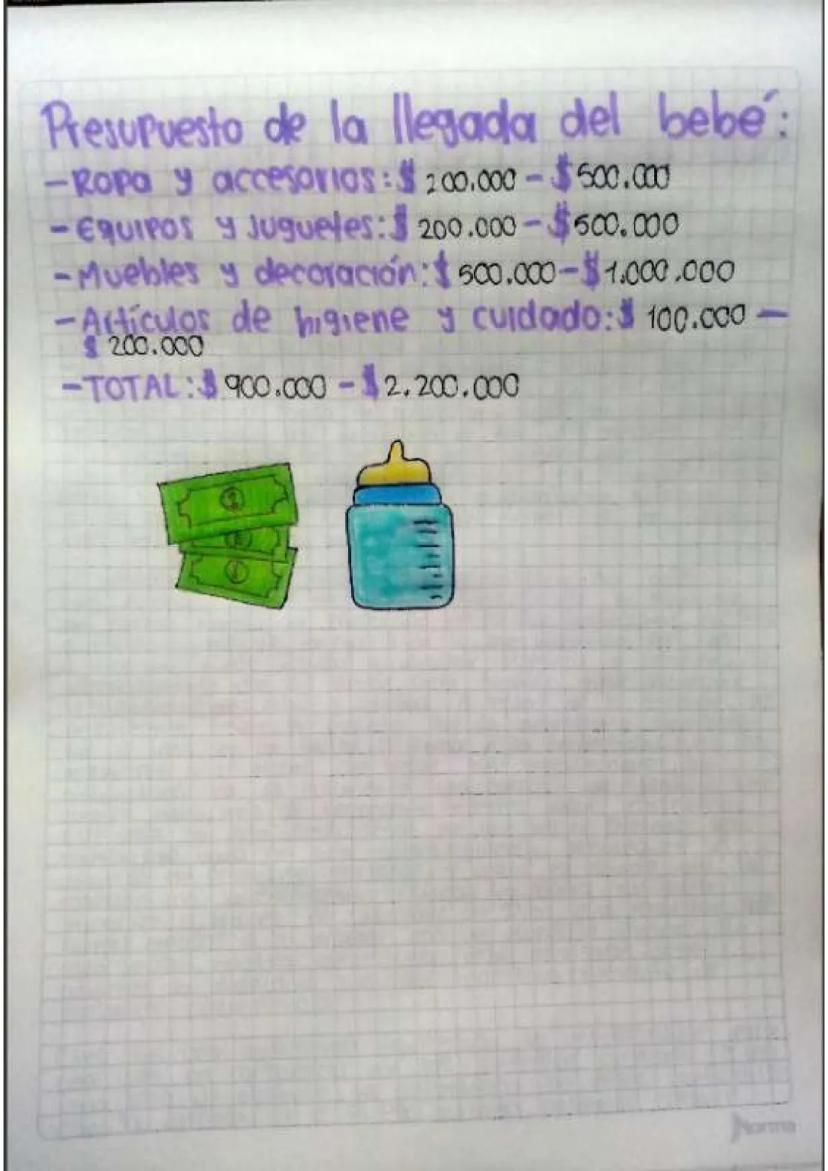 Presupuesto de la llegada del bebé:
- Ropa y accesorios: $ 200.000 - $ 500.000
- Equipos y Juguetes: $ 200.000 - $ 500.000
- Muebles y decoración: $ 500.000 - $ 1.000.000
- Artículos de higiene y cuidado: $ 100.000 -
$ 200.000
- TOTAL: $ 900.000 - $ 2.200.000
Norma